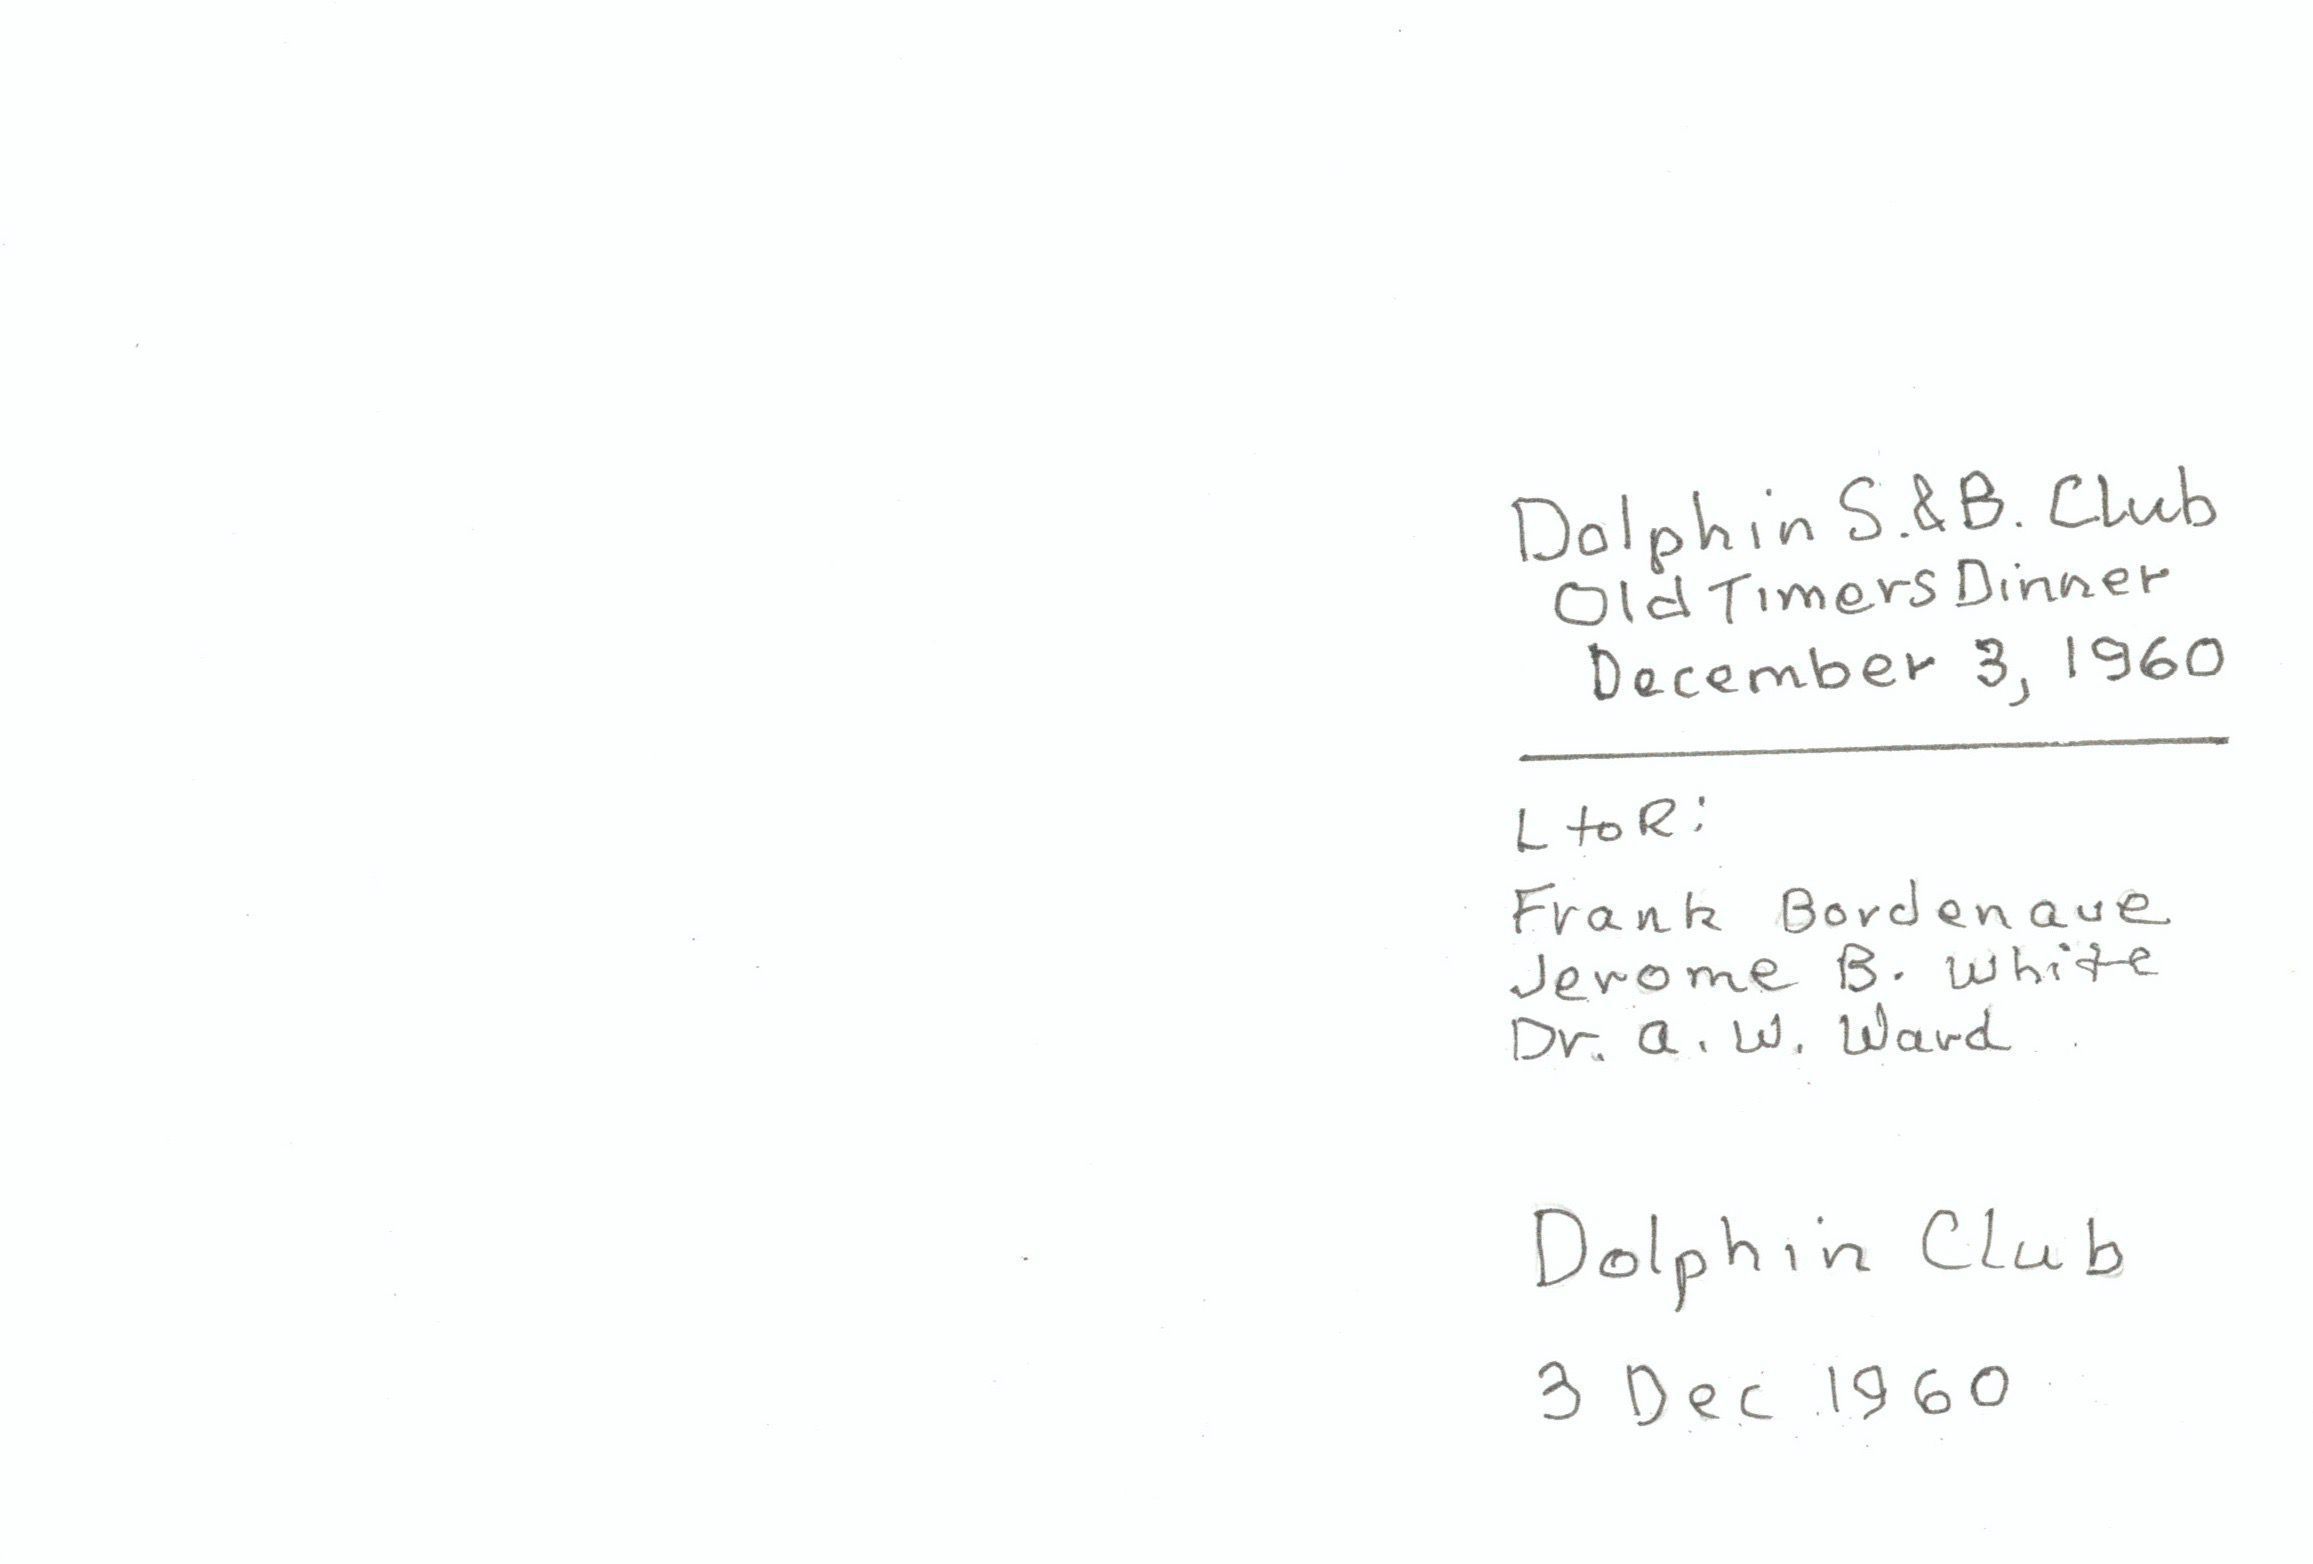 Dolphin S.&B. Club
Old Timers Dinner
December 3, 1960
L to R:
Frank Bordenave
Jerome B. White
Dr. A. W. Ward
Dolphin Club
3 Dec 1960